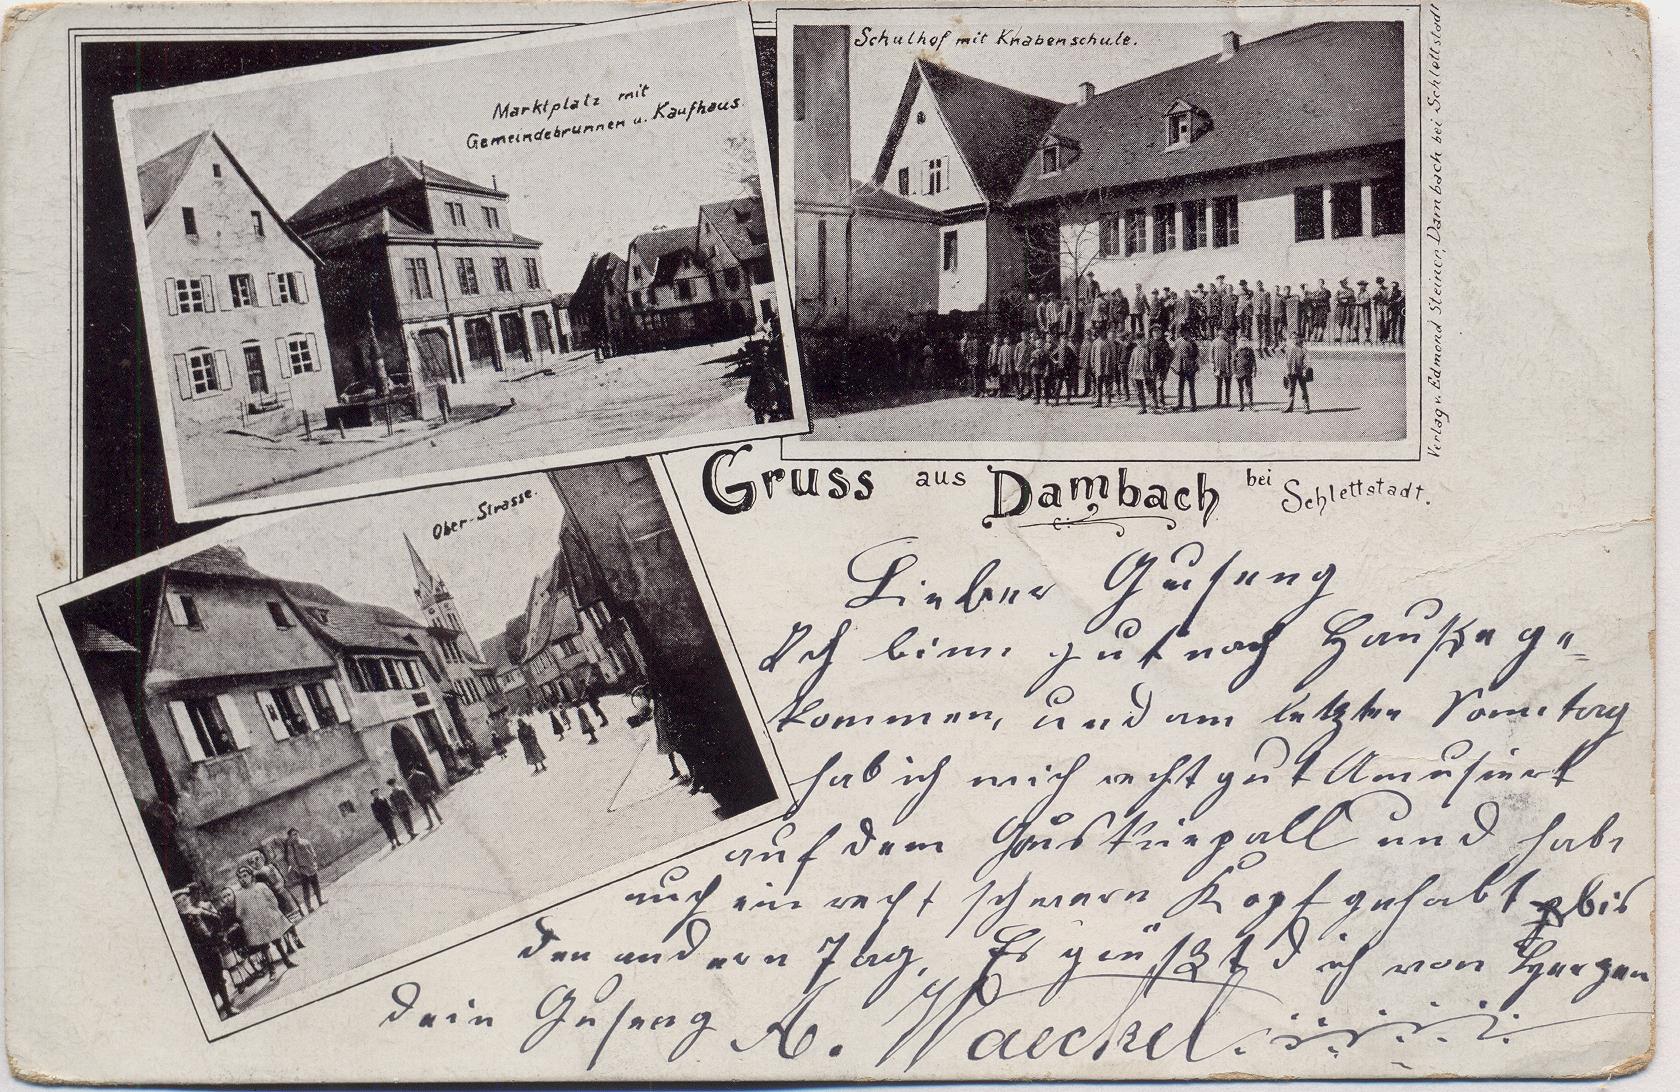 Marktplatz mit
Gemeindebrunnen u. Kaufhaus.
Schulhof mit Knabenschule.
Verlag v. Edmond Steiner, Dambach bei Schlettstadt
Ober-Strasse.
Gruss aus Dambach bei Schlettstadt.
Lieber
Ich binn gut nach Hauße ge-
kommen, und am letzten Sonntag
hab ich mich recht gut Amusiert
auf dem und habe
auch ein recht schwern Kopf gehabt bis
den andern Tag, Es grüßt dich von Herzen
dein A. Waeckel.